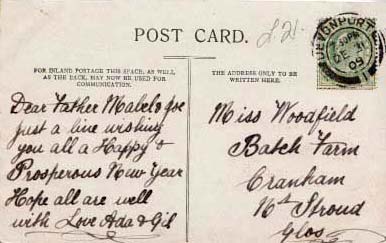 POST CARD.
L.H.
DEVONPORT
DE 31
09
FOR INLAND POSTAGE THIS SPACE, AS WELL
AS THE BACK, MAY NOW BE USED FOR
COMMUNICATION.
Dear Father Mabel & Joe
just a line wishing
you all a Happy &
Prosperous New Year
Hope all are well
with Love Ada & Gil
THE ADDRESS ONLY TO BE
WRITTEN HERE.
Miss Woodfield
Batch Farm
Cranham
Nr Stroud
Glos